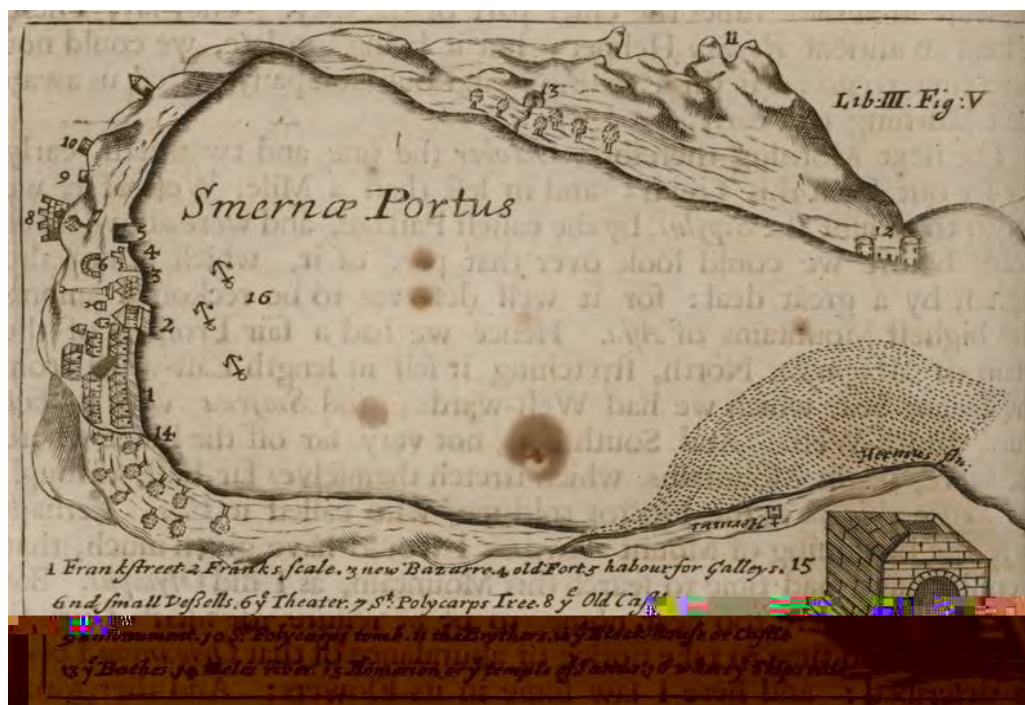 11
Lib:III. Fig:V
13
10
9
Smernæ Portus
8
5
12
4
6
3
16
2
1
14
Hermus flu:
1 Frankstreet. 2 Franks scale. 3 new Bazarre. 4 old Fort 5 habour for Galleys. 15
and small Veßells. 6 yͤ Theater. 7 Sᵗ. Polycarps Tree. 8 yͤ Old
9 a monument. 10 Sᵗ. Polycarps tomb. 11 the Brythers. 12 yͤ Block house or Castle
13 yͤ Bathes. 14 Meles River. 15 Homerion or yͤ temple of Janus. 16 where yͤ Ships ride